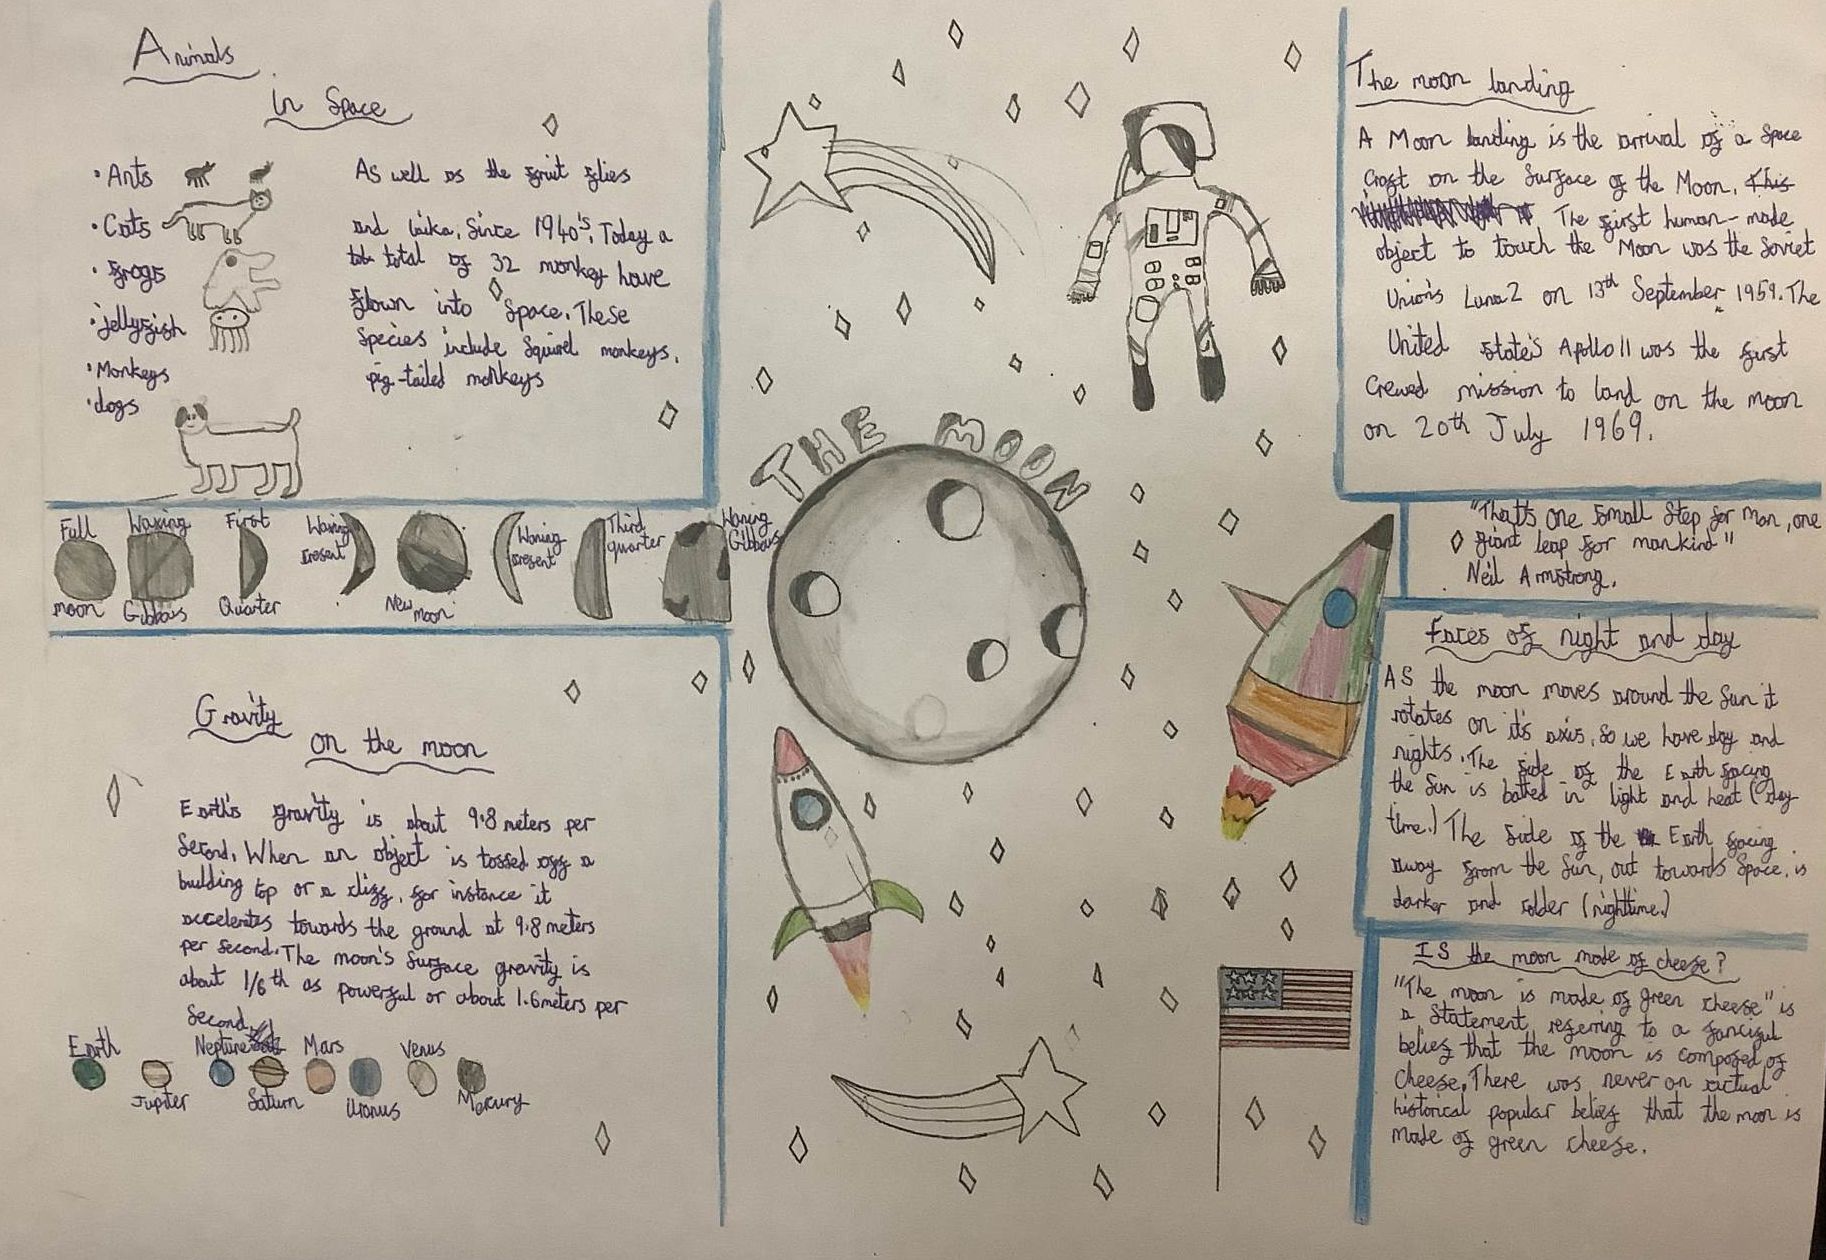 Animals
in Space
• Ants
• Cats
• frogs
• jellyfish
• Monkeys
• dogs
As well as the fruit flies
and laika. Since 1940's. Today a
total of 32 monkey have
flown into Space. These
Species include Squirrel monkeys,
pig-tailed monkeys
Full
moon
Waxing
Gibbous
First
Quarter
Waxing
cresent
New
moon
Waning
cresent
Third
quarter
Waning
Gibbous
Gravity
on the moon
Earth's gravity is about 9.8 meters per
Second. When an object is tossed off a
building top or a cliff, for instance it
accelerates towards the ground at 9.8 meters
per second. The moon's Surface gravity is
about 1/6th as powerful or about 1.6 meters per
Second.
Earth
Jupiter
Neptune
Saturn
Mars
Uranus
Venus
Mercury
THE MOON
The moon landing
A Moon landing is the arrival of a Space
Craft on the Surface of the Moon. This
The first human-made
object to touch the Moon was the Soviet
Union's Luna 2 on 13th September 1959. The
United state's Apollo 11 was the first
Crewed mission to land on the moon
on 20th July 1969.
"That's one Small Step for man, one
giant leap for mankind"
Neil Armstrong.
Faces of night and day
AS the moon moves around the Sun it
rotates on it's axis, So we have day and
nights. The side of the Earth facing
the Sun is in light and heat (day
time.) The side of the Earth facing
away from the Sun, out towards Space, is
darker and colder (nighttime.)
IS the moon made of cheese?
"The moon is made of green cheese" is
a Statement referring to a fanciful
belief that the moon is composed of
Cheese. There was never an actual
historical popular belief that the moon is
made of green cheese.